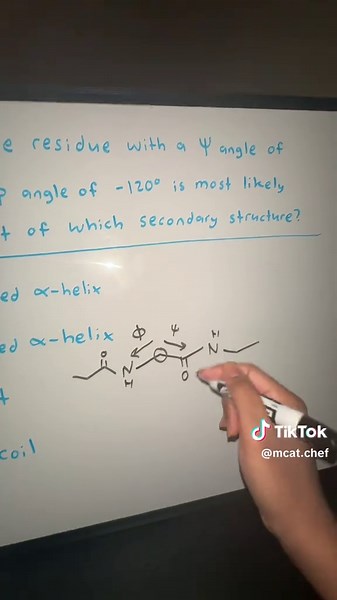 e residue with a ψ angle of
angle of -120° is most likely
of which secondary structure?
ed α-helix
ed α-helix
ϕ ψ
H
O N
N O
H
coil
TikTok
@mcat.chef